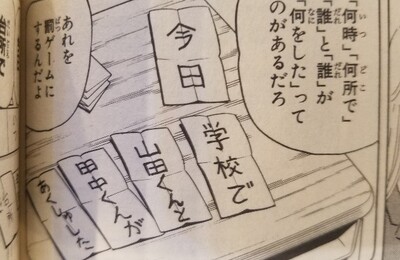 「何時」「何所で」
「誰」と「誰」が
「何をした」って
のがあるだろ
今田
学校で
山田くんと
田中くんが
あくしゅした
あれを
罰ゲームに
するんだよ